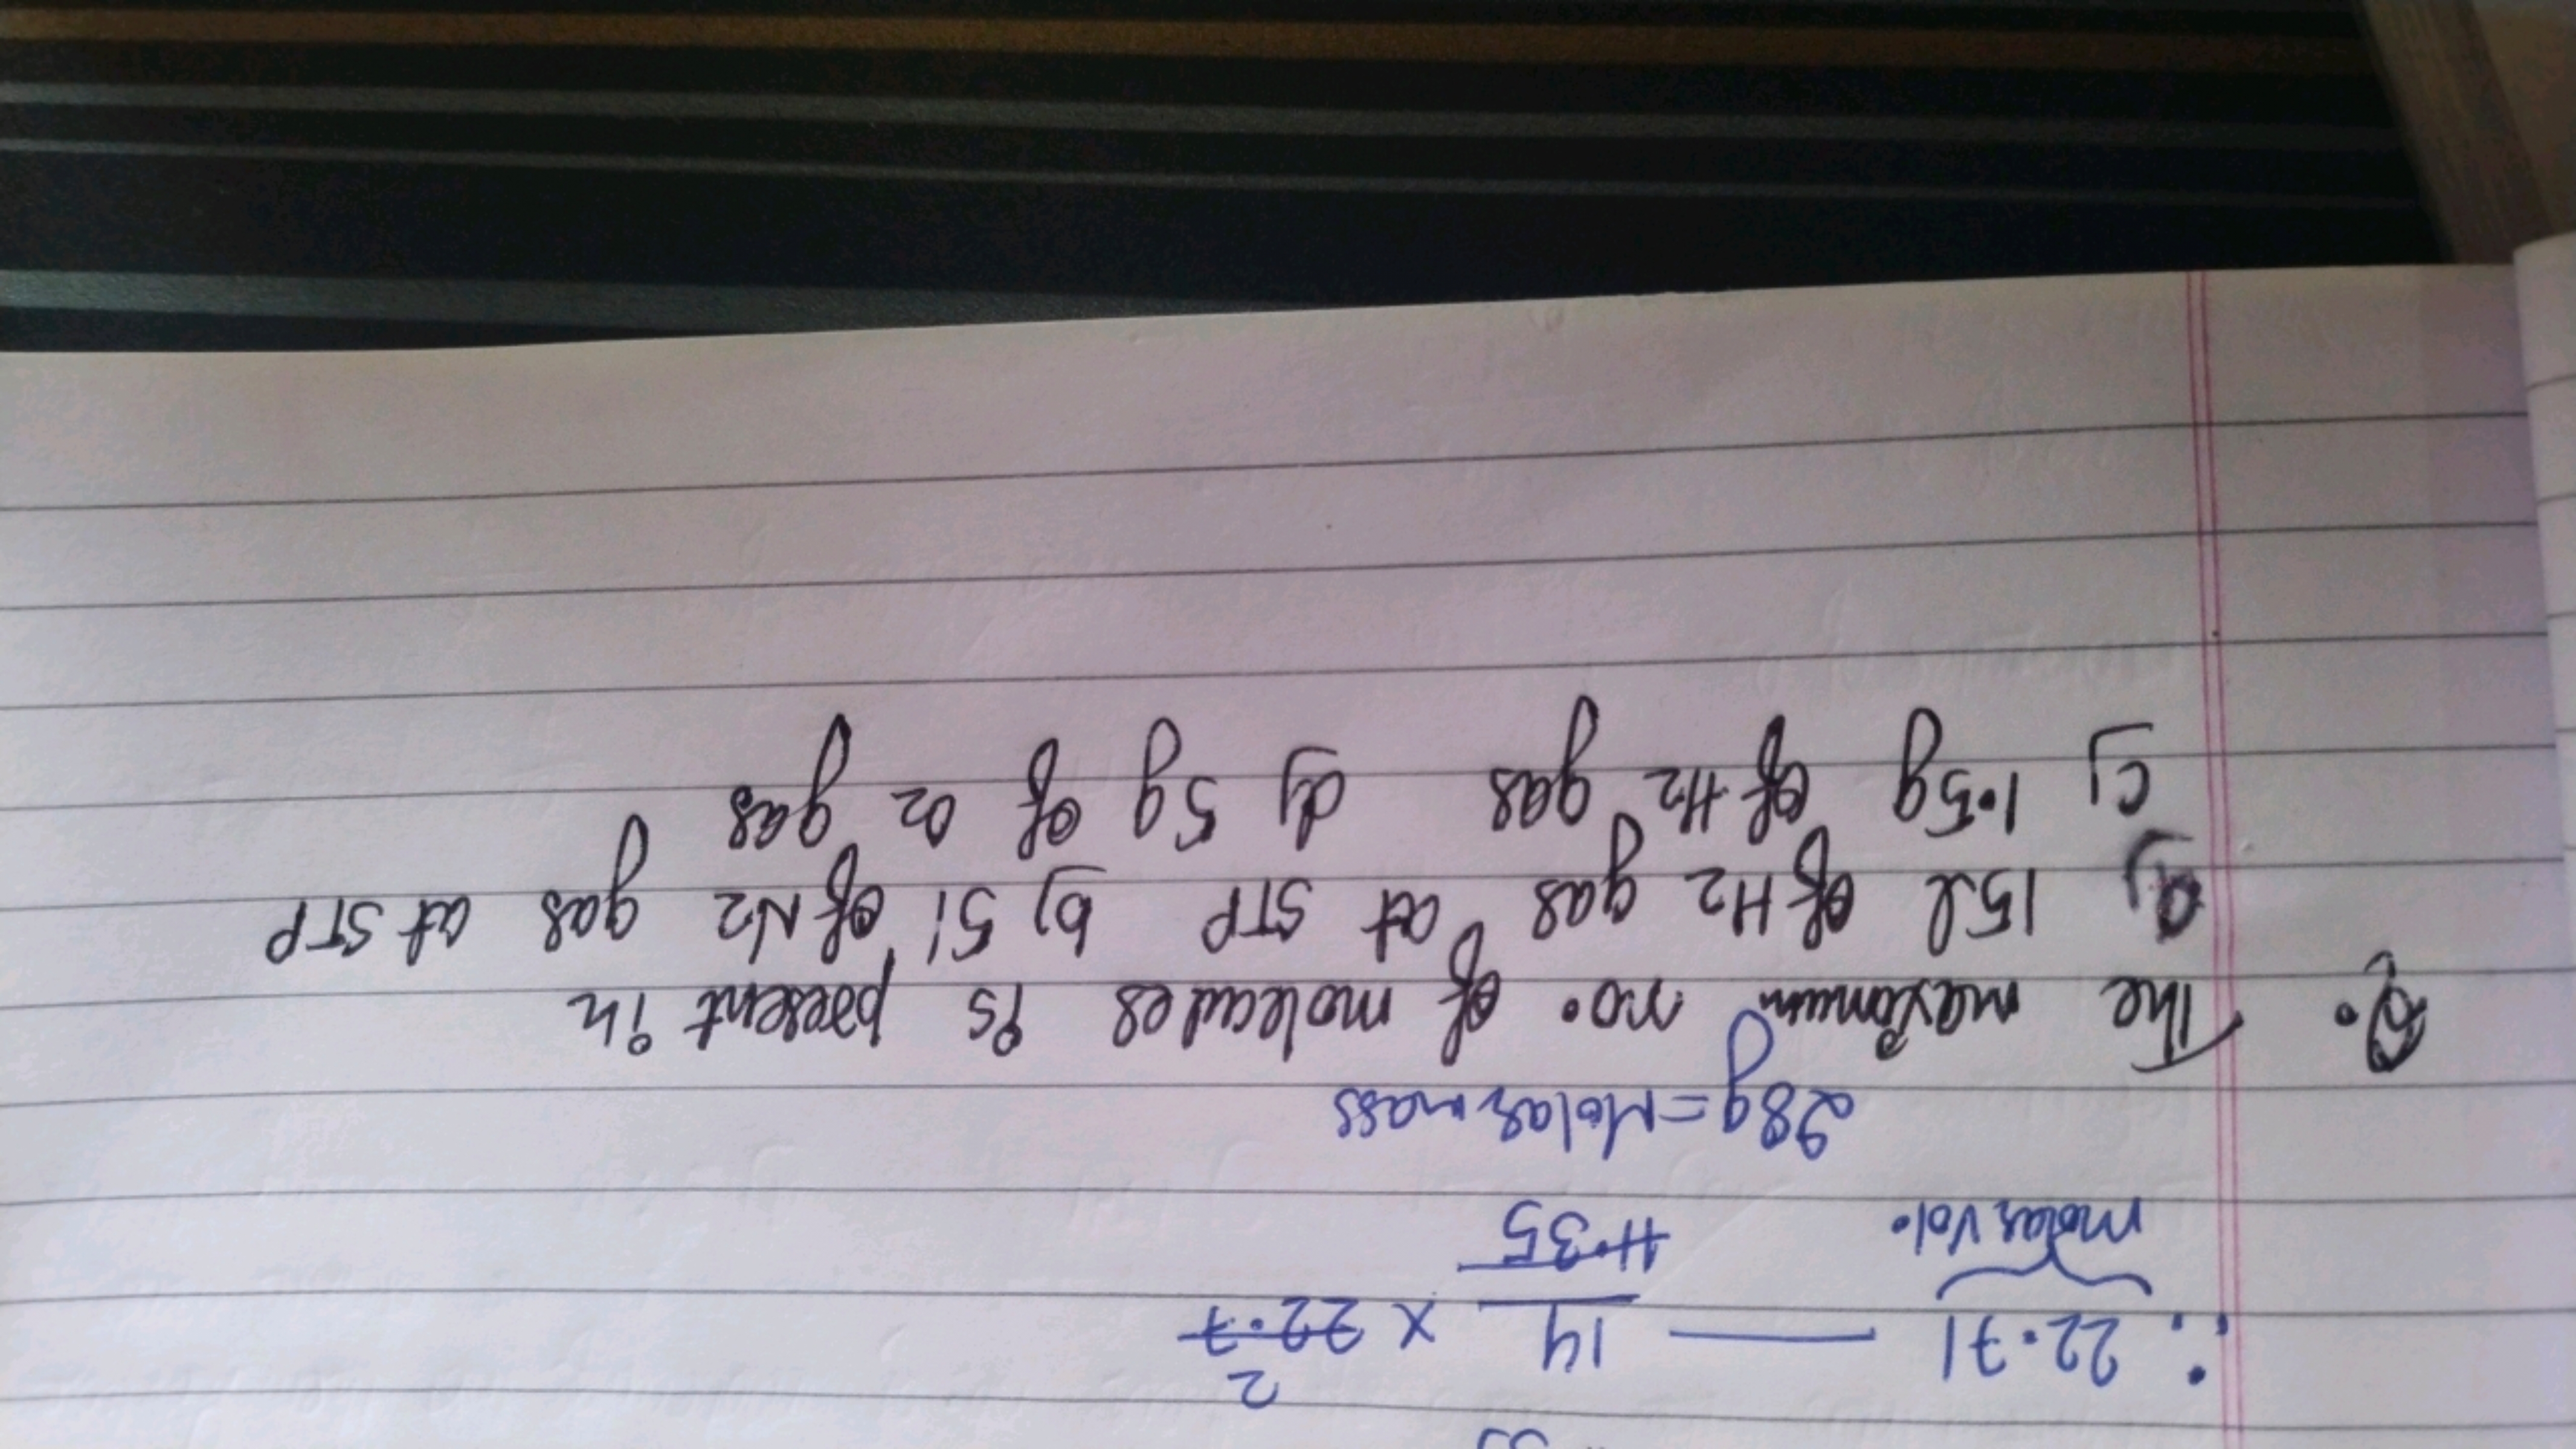 ∴ 22.7l — 14/11.35 × 22.7 2
molar vol.
28g = Molar mass
Q. The maximum no. of molecules is present in
a) 15l of H2 gas at STP b) 5l of N2 gas at STP
c) 1.5g of H2 gas d) 5g of O2 gas